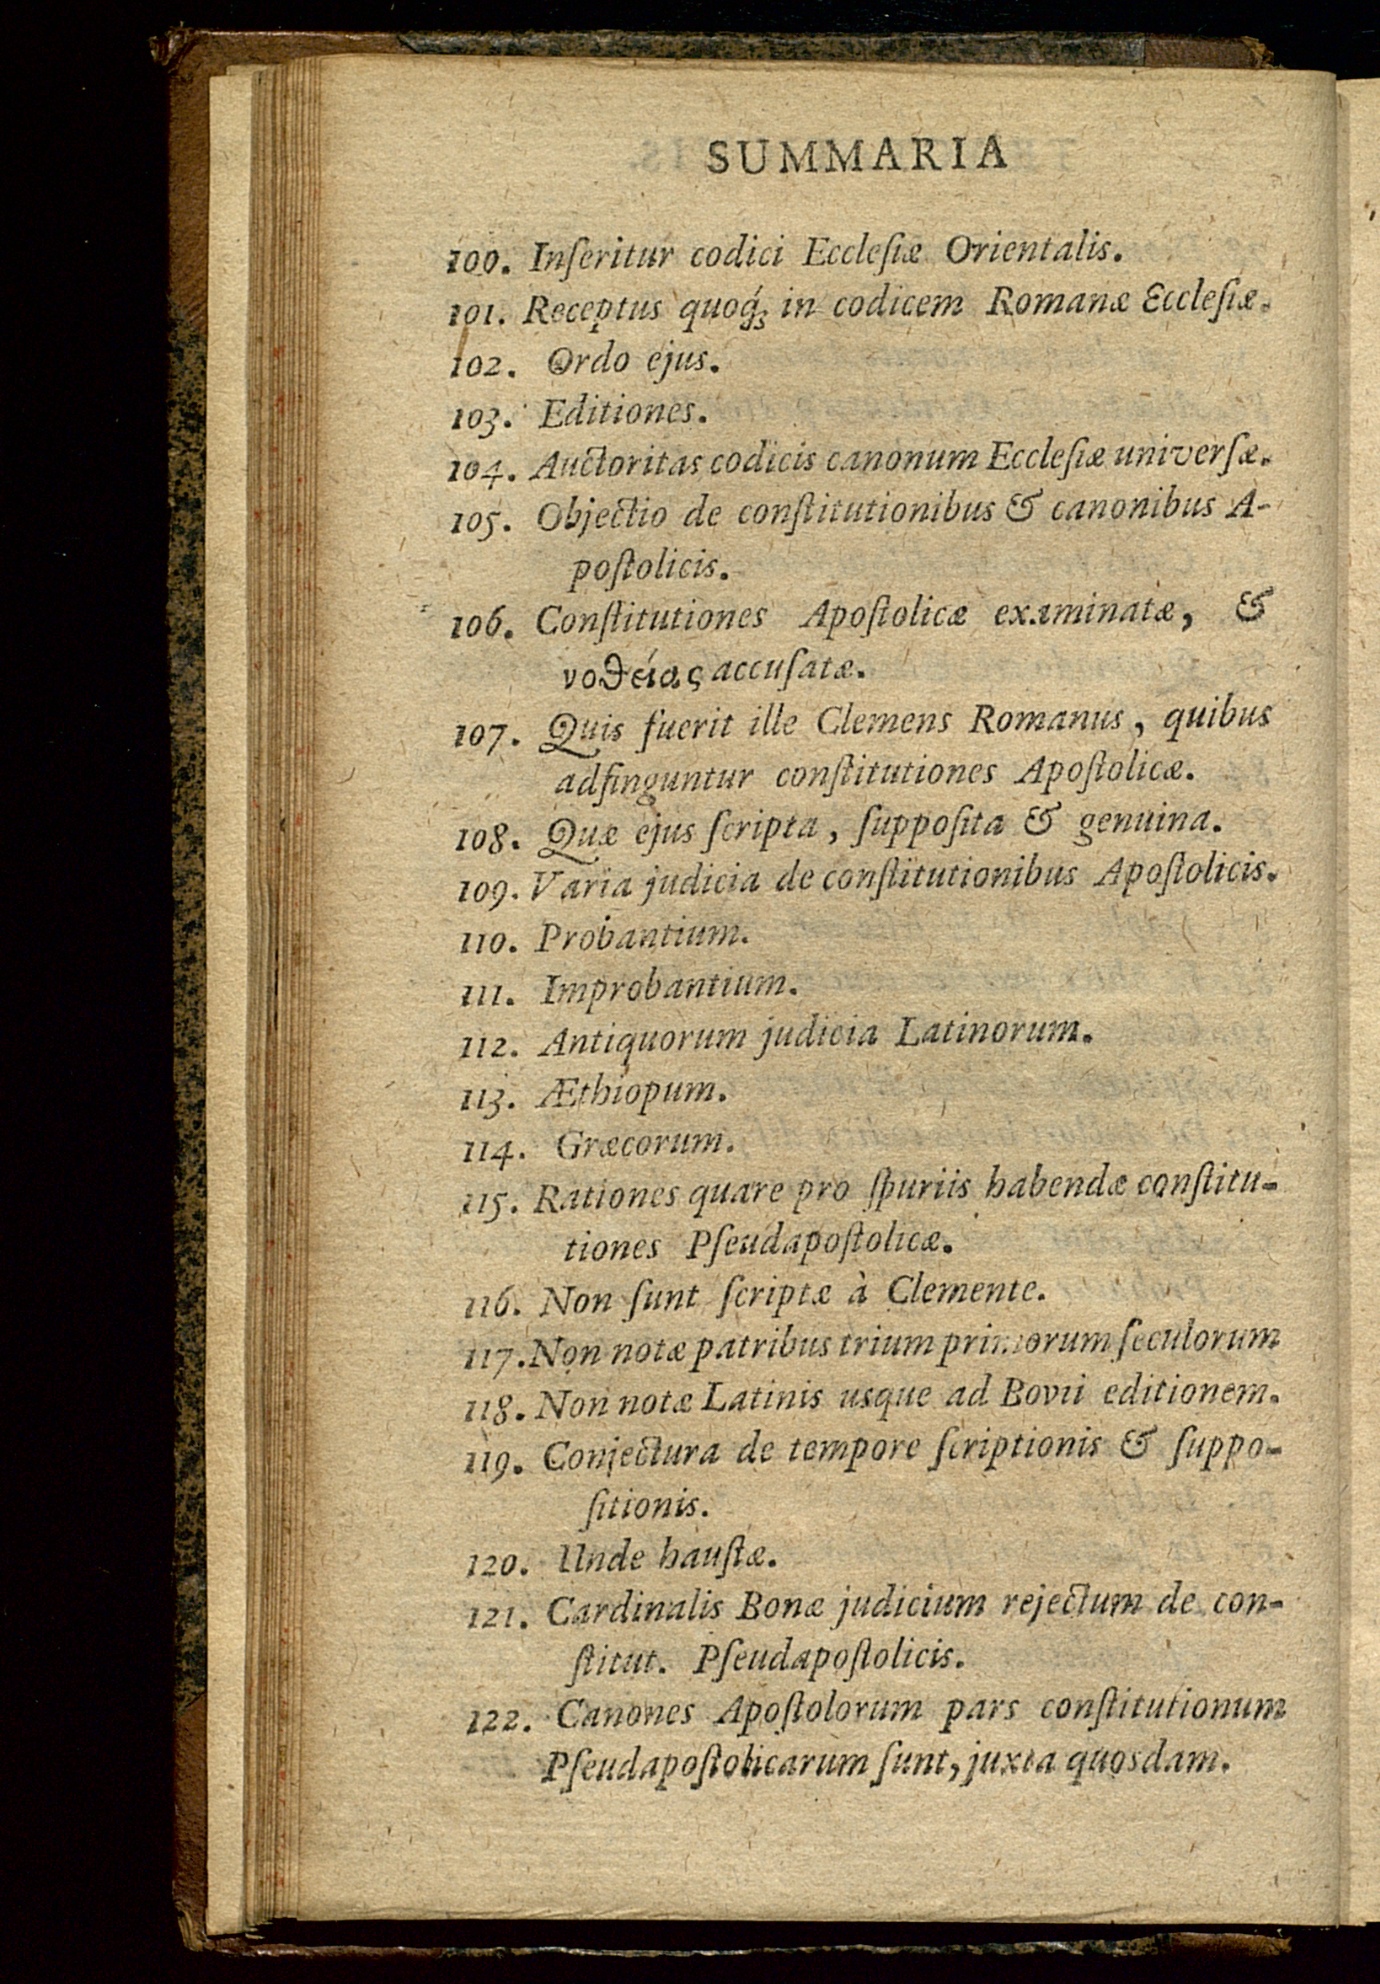 SUMMARIA
100. Inſeritur codici Eccleſiæ Orientalis.
101. Receptus quoq́ꝫ in codicem Romanæ Eccleſiæ.
102. Ordo ejus.
103. Editiones.
104. Auctoritas codicis canonum Eccleſiæ univerſæ.
105. Objectio de conſtitutionibus & canonibus A-
poſtolicis.
106. Conſtitutiones Apoſtolicæ examinatæ, &
νοθείας accuſatæ.
107. Quis fuerit ille Clemens Romanus, quibus
adfinguntur conſtitutiones Apoſtolicæ.
108. Quæ ejus ſcripta, ſuppoſita & genuina.
109. Varia judicia de conſtitutionibus Apoſtolicis.
110. Probantium.
111. Improbantium.
112. Antiquorum judicia Latinorum.
113. Æthiopum.
114. Græcorum.
115. Rationes quare pro ſpuriis habendæ conſtitu-
tiones Pſeudapoſtolicæ.
116. Non ſunt ſcriptæ à Clemente.
117. Non notæ patribus trium primorum ſeculorum
118. Non notæ Latinis usque ad Bovii editionem.
119. Conjectura de tempore ſcriptionis & ſuppo-
ſitionis.
120. Unde hauſtæ.
121. Cardinalis Bonæ judicium rejectum de con-
ſtitut. Pſeudapoſtolicis.
122. Canones Apoſtolorum pars conſtitutionum
Pſeudapoſtolicarum ſunt, juxta quosdam.